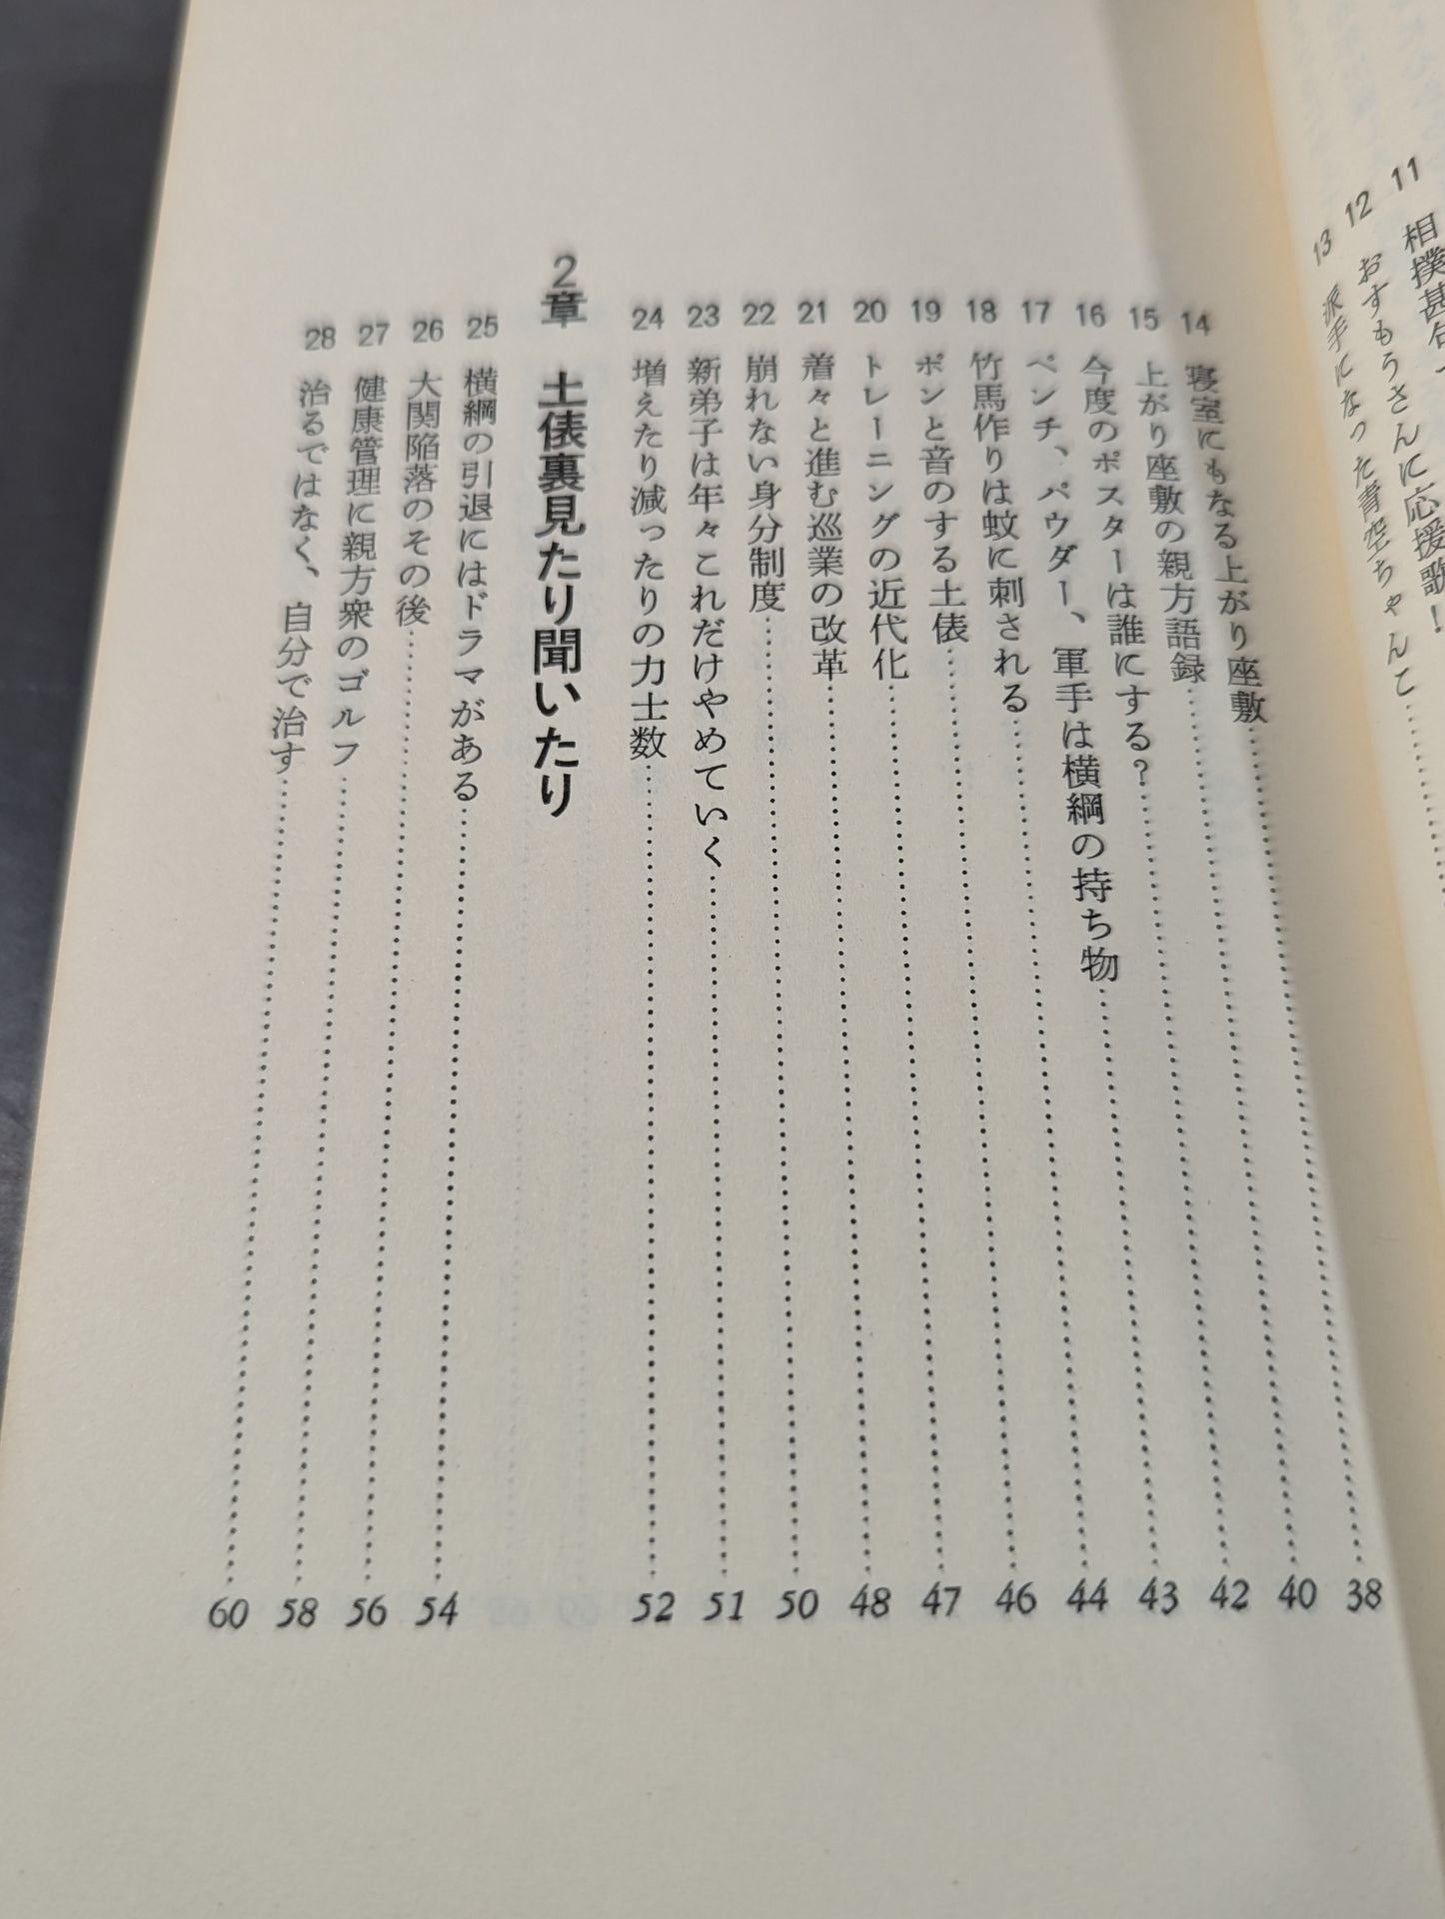 11 相撲甚句、
12 おすもうさんに応援歌！
13 派手になった青空ちゃんこ……
14 寝室にもなる上がり座敷……38
15 上がり座敷の親方語録……40
16 今度のポスターは誰にする？……42
17 ペンチ、パウダー、軍手は横綱の持ち物……43
18 竹馬作りは蚊に刺される……44
19 ポンと音のする土俵……46
20 トレーニングの近代化……47
21 着々と進む巡業の改革……48
22 崩れない身分制度……50
23 新弟子は年々これだけやめていく……51
24 増えたり減ったりの力士数……52
2章 土俵裏見たり聞いたり
25 横綱の引退にはドラマがある……54
26 大関陥落のその後……56
27 健康管理に親方衆のゴルフ……58
28 治るではなく、自分で治す……60